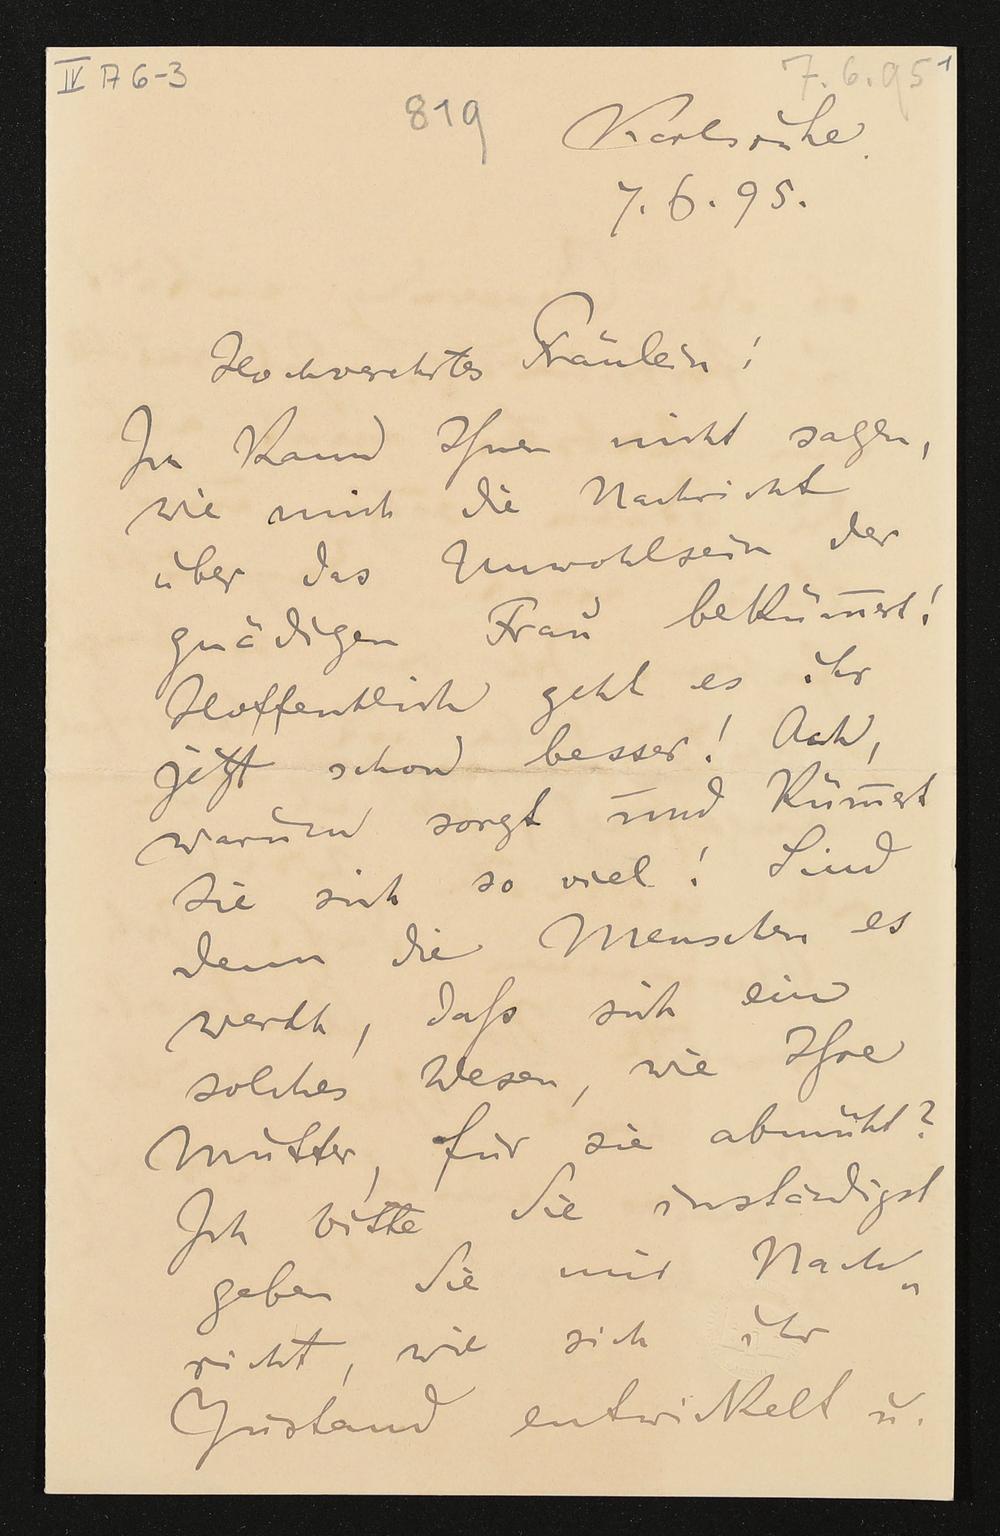 IV A 6-3
7.6.95 1
819
Karlsruhe.
7.6.95.
Hochverehrtes Fräulein!
Ich kann Ihnen nicht sagen,
wie mich die Nachricht
über das Unwohlsein der
gnädigen Frau beküm̅ert!
Hoffentlich geht es ihr
jetzt schon besser! Ach,
warum sorgt und küm̅ert
sie sich so viel! Sind
denn die Menschen es
werth, daß sich ein
solches Wesen, wie Ihre
Mutter, für sie abmüht?
Ich bitte Sie inständigst
geben Sie mir Nach„
richt, wie sich ihr
Zustand entwickelt u.